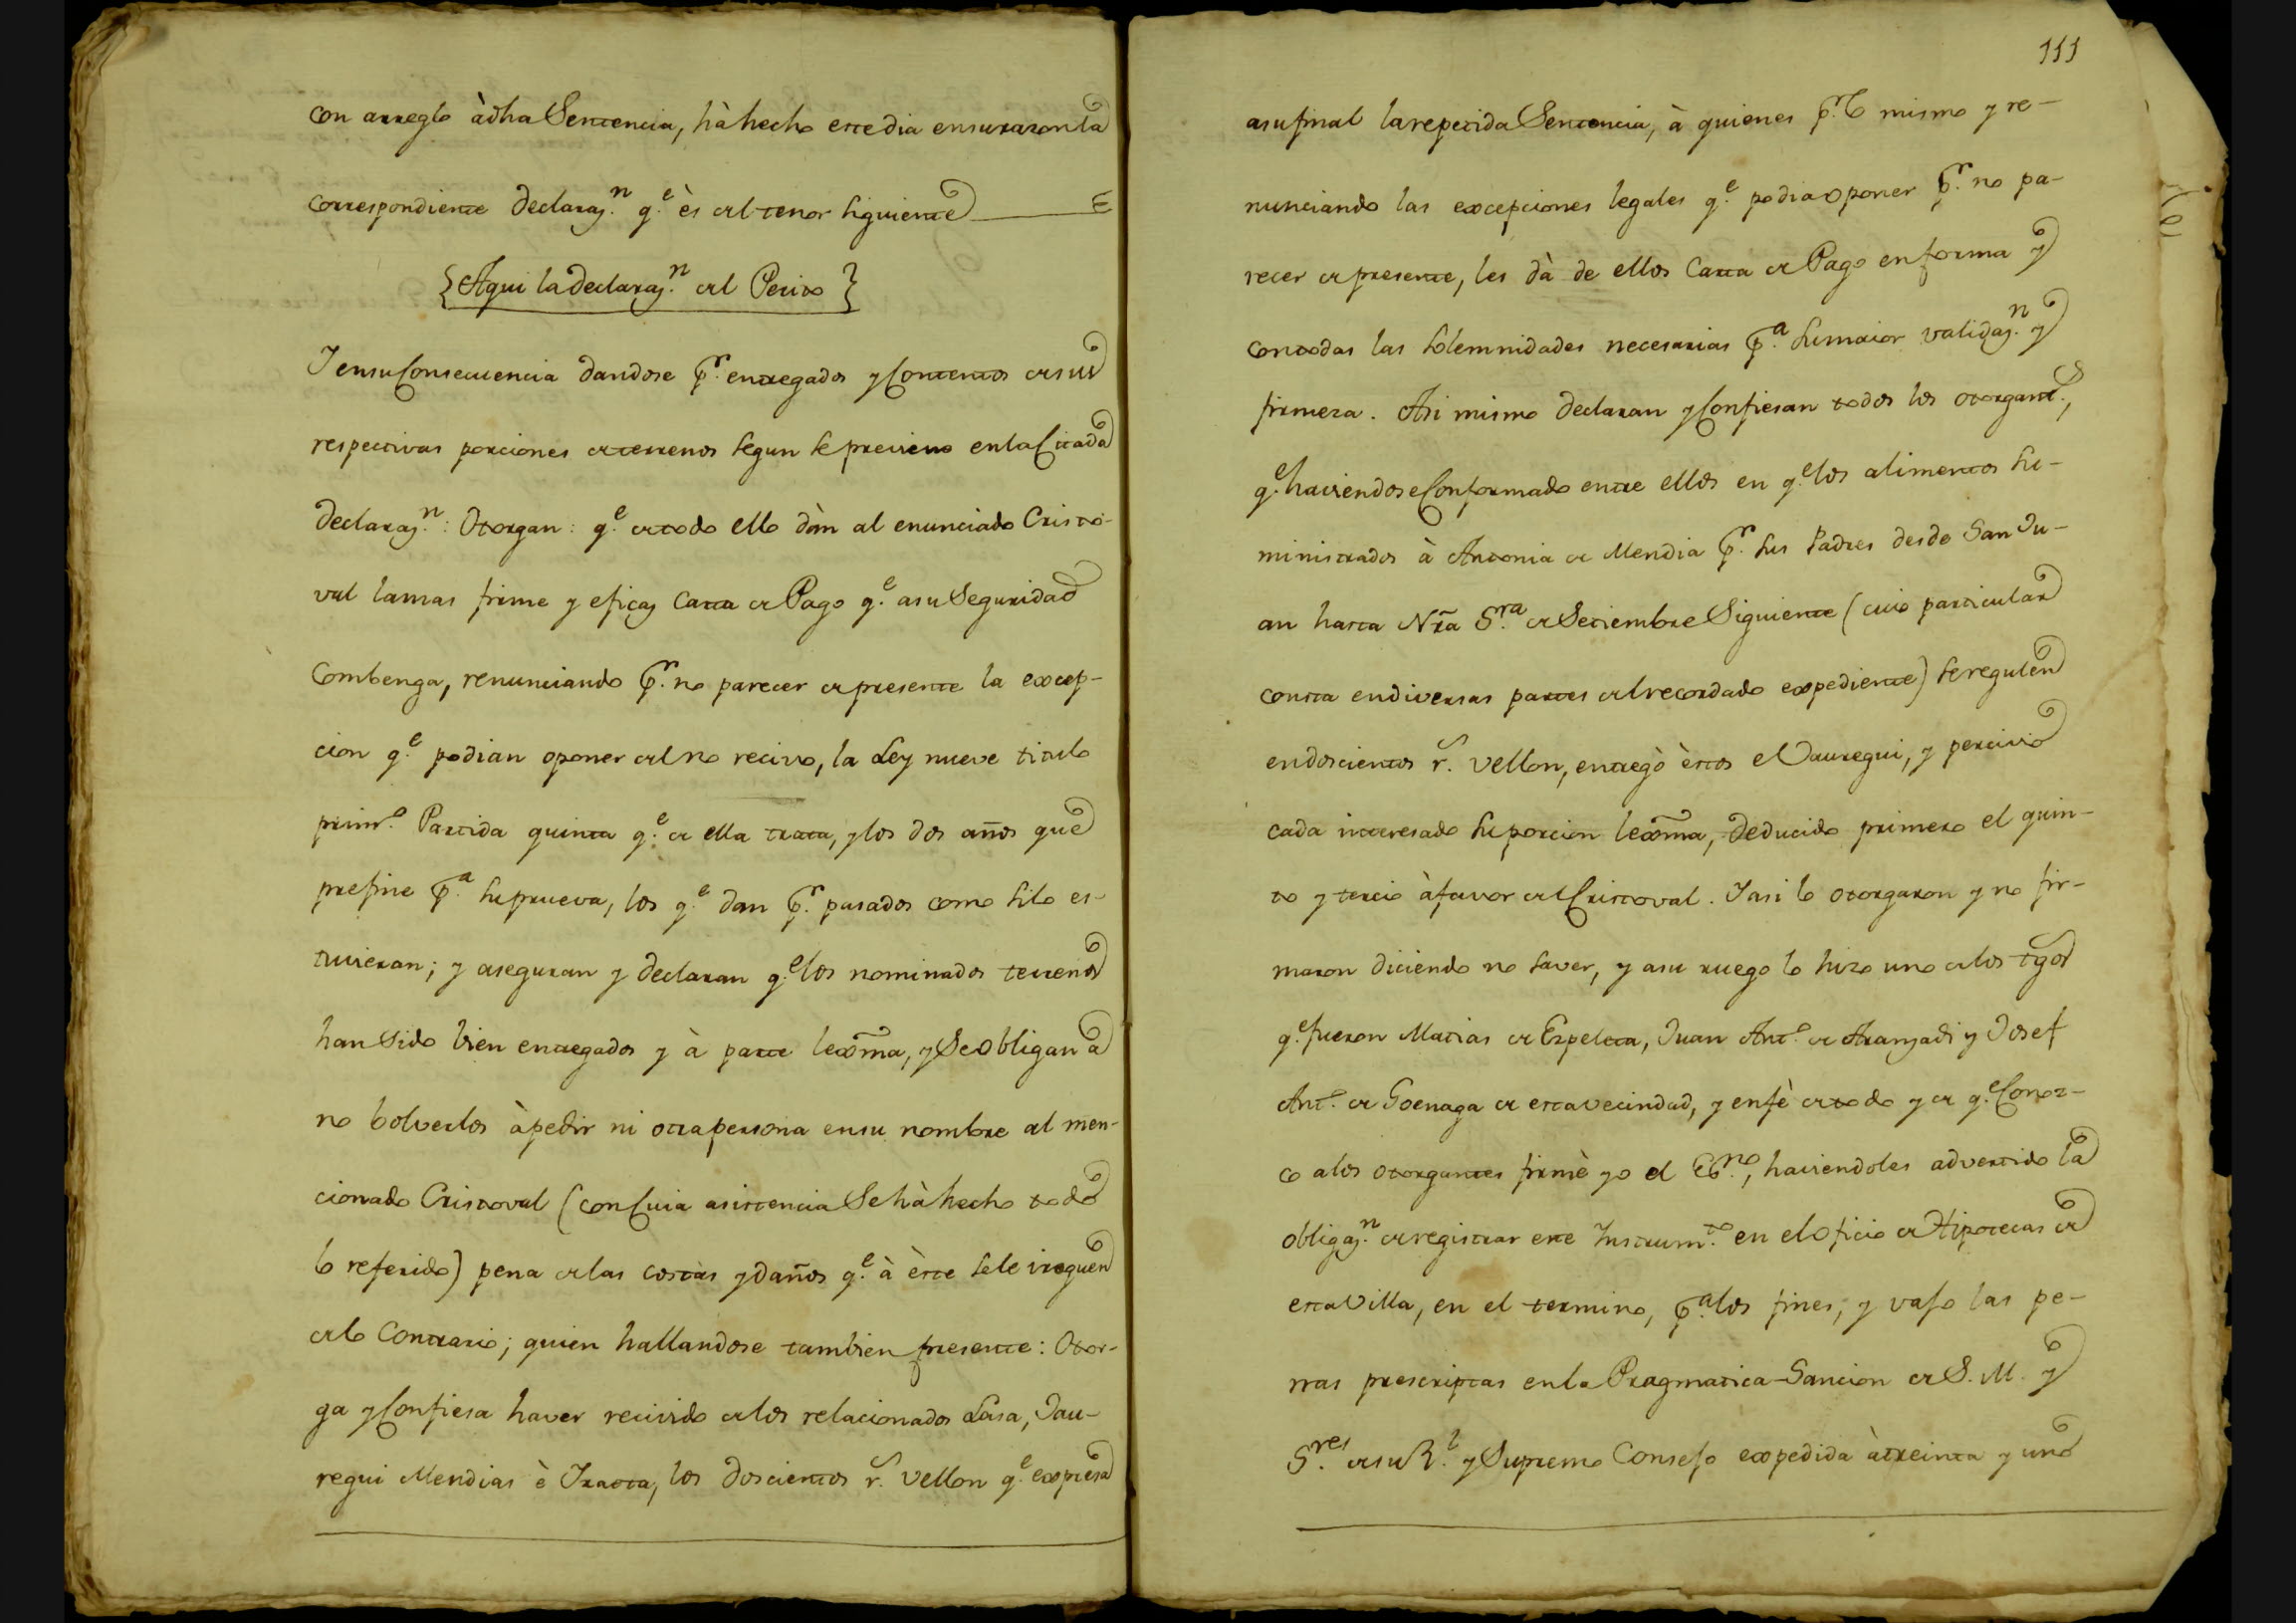 con arreglo à dha Sentencia, hà hecho este dia en su razon la
correspondiente declaraz.n q.e ès del tenor siguiente
{Aqui la declaraz.n del Perito}
I en su Consecuencia dandose p.r entregados y Contentos de sus
respectivas porciones de terrenos segun se previene en la Citada
declaraz.n: Otorgan: q.e de todo ello dàn al enunciado Cristo-
val la mas firme y eficaz Carta de Pago q.e a su Seguridad
Combenga, renunciando p.r no parecer de presente la excep-
cion q.e podian oponer del no recivo, la Ley nueve titulo
prim.o Partida quinta q.e de ella trata, y los dos años que
prefine p.a su prueva, los q.e dan p.r pasados como si lo es-
tuvieran; y aseguran y declaran q.e los nominados terrenos
han sido bien entregados y à parte lexma, y Se obligan a
no bolverlos à pedir ni otra persona en su nombre al men-
cionado Cristoval (con Cuia asistencia Se hà hecho todo
lo referido) pena de las costas y daños q.e à èste se le irroguen
de lo Contrario; quien hallandose tambien presente: Otor-
ga y Confiesa haver recivido de los relacionados Lasa, Jau-
regui Mendias è Irazta, los doscientos r.s vellon q.e expresa
111
a su final la repetida Sentencia, à quienes p.r lo mismo y re-
nunciando las excepciones legales q.e podia oponer p.r no pa-
recer de presente, les dà de ellos Carta de Pago en forma y
con todas las solemnidades necesarias p.a su maior validaz.n y
firmeza. Asi mismo declaran y Confiesan todos los otorgant.s,
q.e haviendose Conformado entre ellos en q.e los alimentos su-
ministrados à Antonia de Mendia p.r sus Padres desde San Ju-
an hasta Nra S.ra de Setiembre Siguiente (cuio particular
consta en diversas partes del recordado expediente) se regulen
en doscientos r.s vellon, entregò èstos el Jauregui, y percivio
cada interesado su porcion lexma, deducido primero el quin-
to y tercio à favor del Cristoval. I asi lo otorgaron y no fir-
maron diciendo no saver, y a su ruego lo hizo uno de los tgos
q.e fueron Matias de Ezpeleta, Juan Ant.o de Aranzadi y Josef
Ant.o de Goenaga de esta vecindad, y en fè de todo y de q.e Conoz-
co a los otorgantes firmè yo el Es.no, haviendoles advertido la
obligaz.n de registrar este Instrum.to en el Oficio de Hipotecas de
esta Villa, en el termino, p.a los fines, y vajo las pe-
nas prescriptas en la Pragmatica-Sancion de S. M. y
S.res de su R.l y Supremo Consejo expedida à treinta y uno